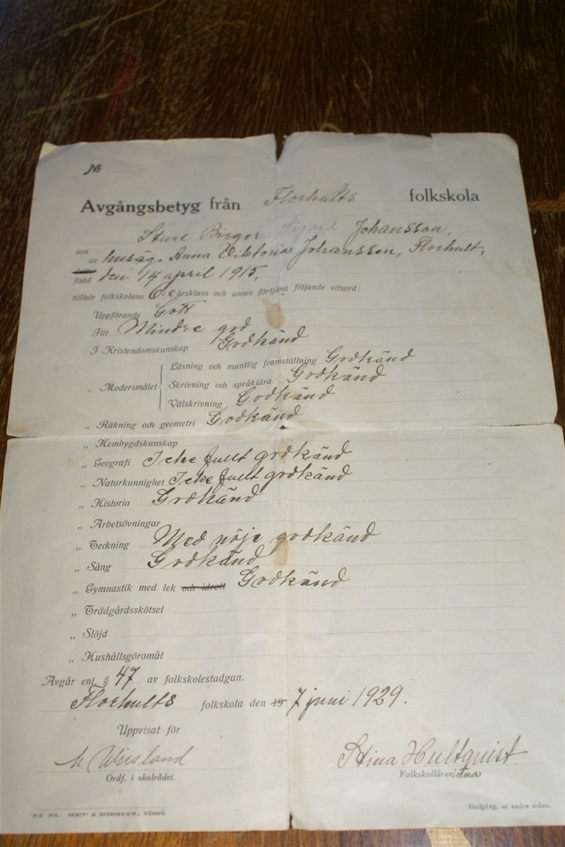 №
Avgångsbetyg från Florhults folkskola
Sture Birger Sigard Johansson,
son
av husäg. Anna Viktoria Johansson, Florhult,
född den 14 april 1915,
tillhör folkskolans 6:e årsklass och anses förtjäna följande vitsord:
Uppförande Gott
Flit Mindre god
I Kristendomskunskap Godkänd
„ Modersmålet
Läsning och muntlig framställning Godkänd
Skrivning och språklära Godkänd
Välskrivning Godkänd
„ Räkning och geometri Godkänd
„ Hembygdskunskap
„ Geografi Icke fullt godkänd
„ Naturkunnighet Icke fullt godkänd
„ Historia Godkänd
„ Arbetsövningar
„ Teckning Med nöje godkänd
„ Sång Godkänd
„ Gymnastik med lek och idrott Godkänd
„ Trädgårdsskötsel
„ Slöjd
„ Hushållsgöromål
Avgår enl. § 47 av folkskolestadgan.
Florhults folkskola den 19 7 juni 1929.
Uppvisat för
Stina Hultquist
Ordf. i skolrådet.
Folkskollärarinna
Skolgång, se andra sidan.